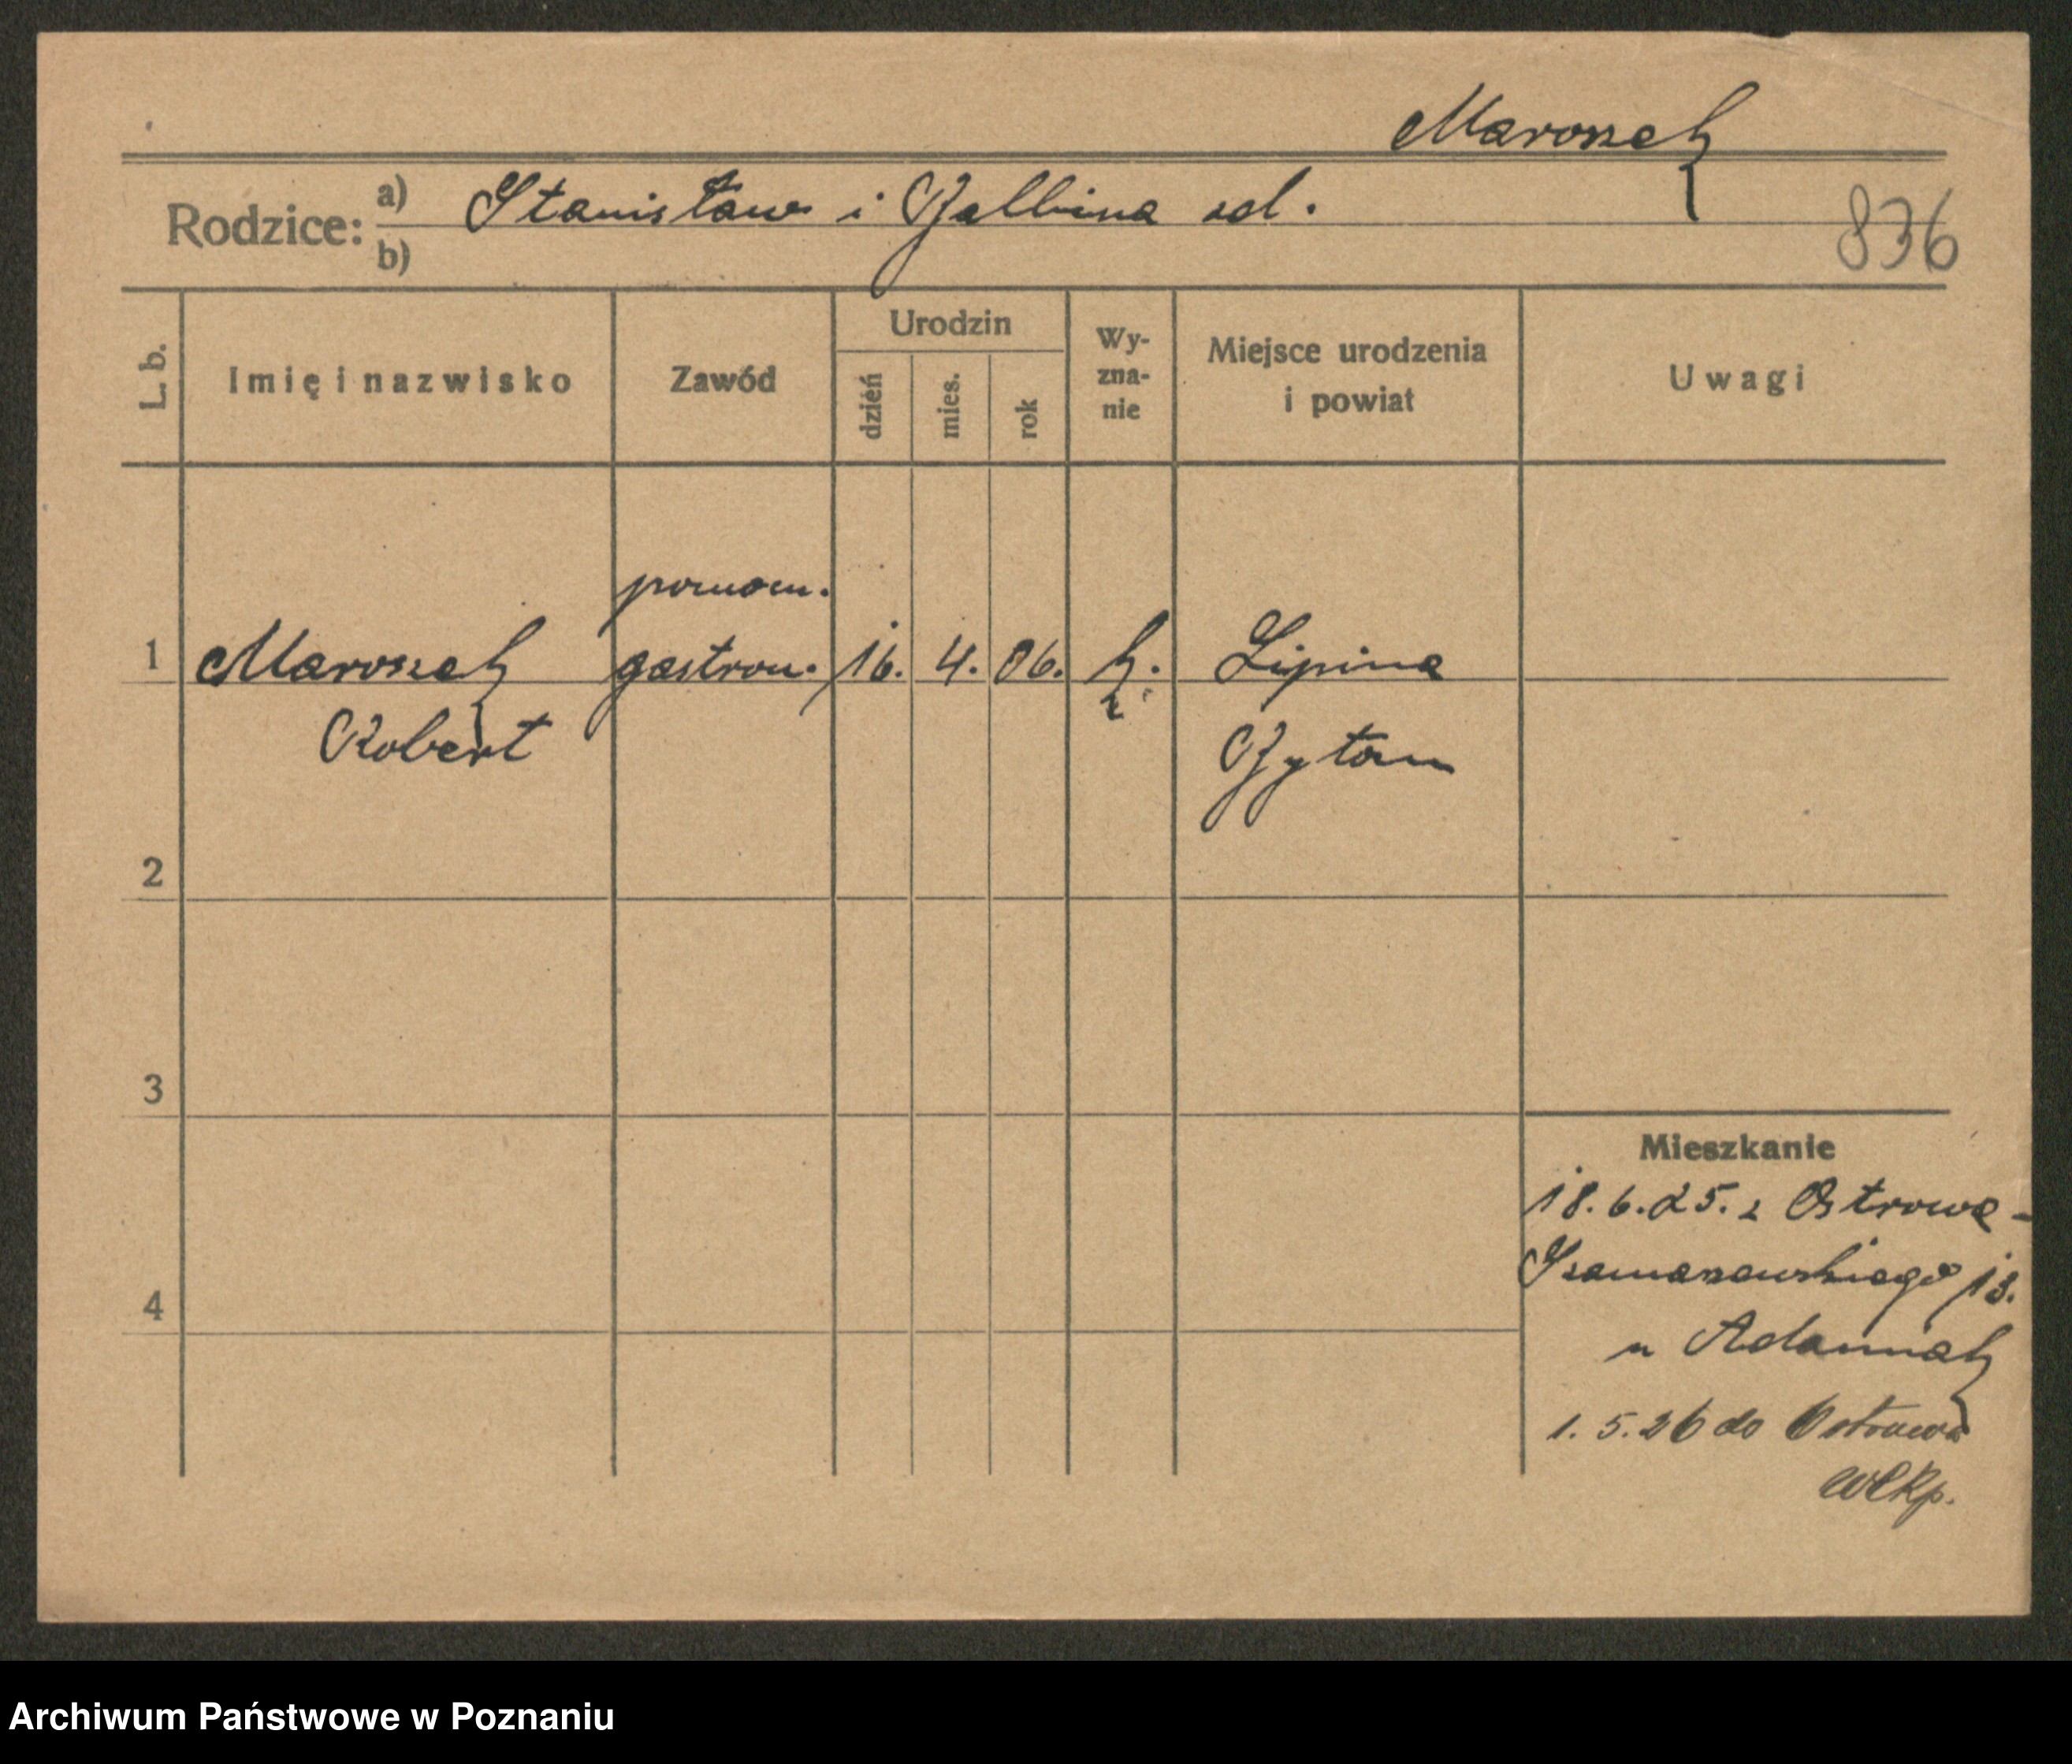 Maroszek
Rodzice: a) Stanisław i Balbina zd.
b)
836
L. b.
Imię i nazwisko
Zawód
Urodzin
dzień
mies.
rok
Wy-
zna-
nie
Miejsce urodzenia
i powiat
Uwagi
pomocn.
1 Maroszek gastron. 16. 4. 06. k. Lipina
Robert Bytom
2
3
4
Mieszkanie
18.6.25. z Ostrowa -
Szamarzewskiego 13.
u Adamiak
1. 5. 26 do Ostrowa
Wlkp.
Archiwum Państwowe w Poznaniu